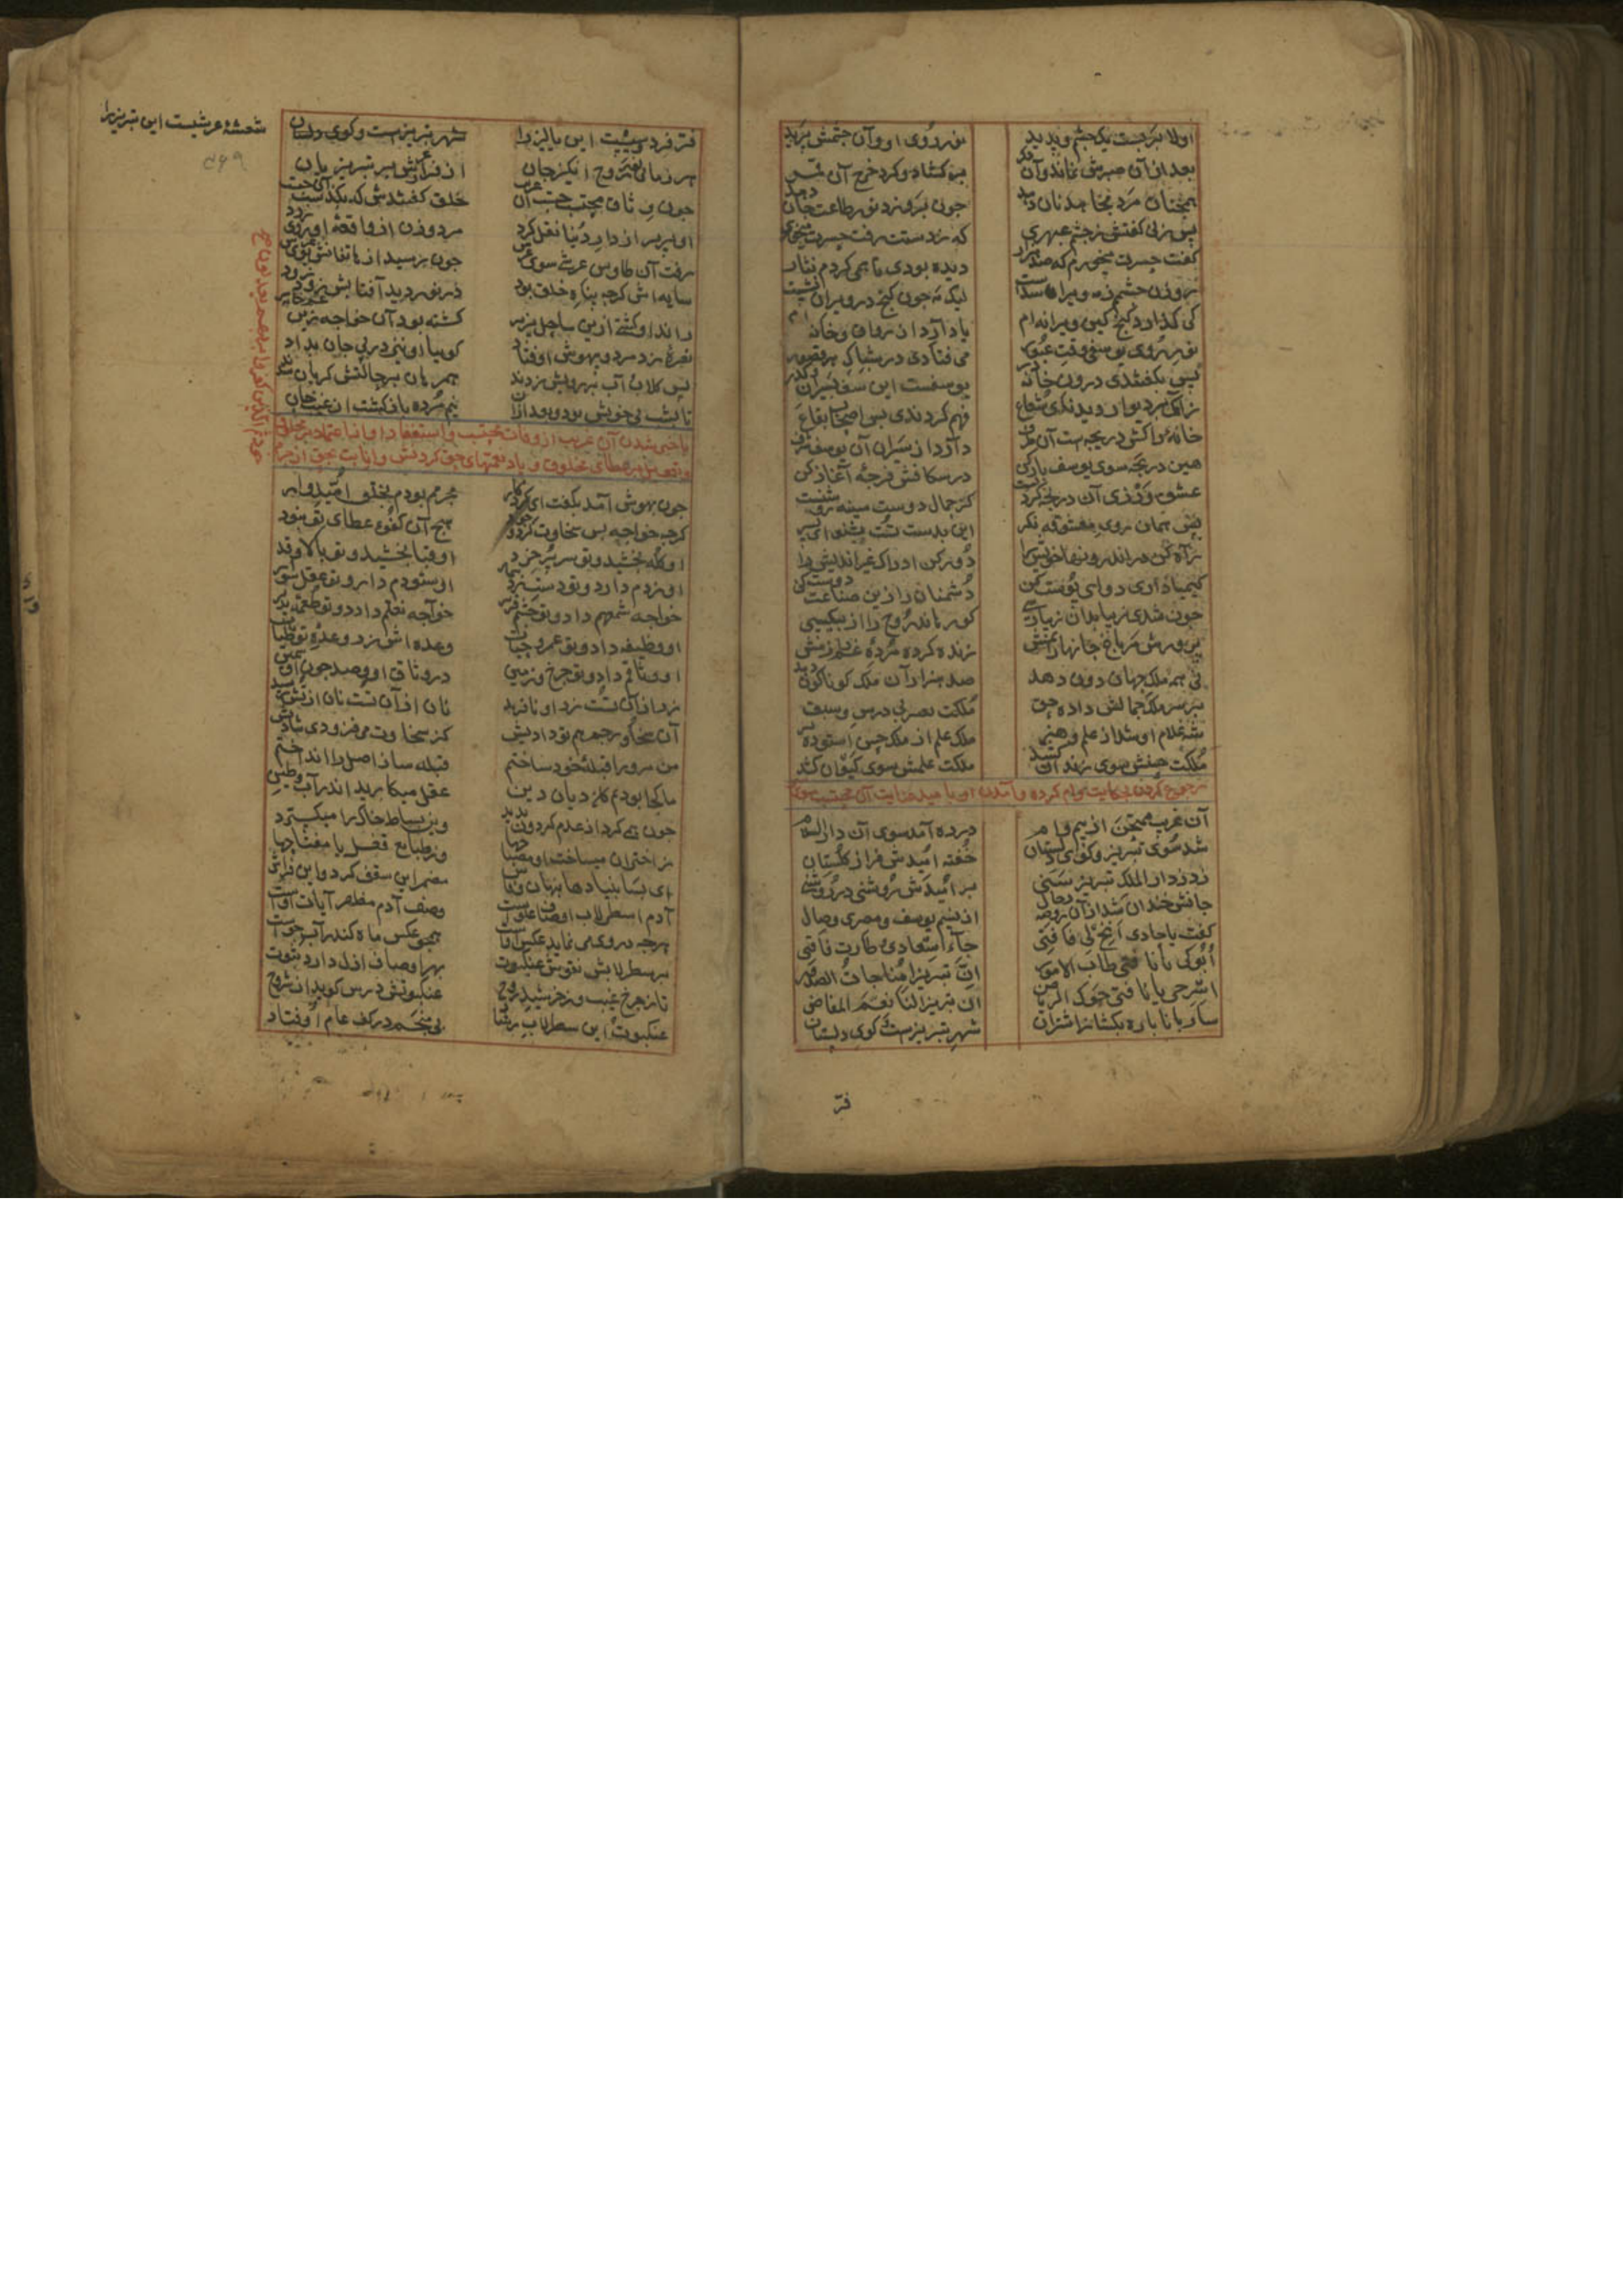 اولا برجست یک چشم و بدید نور روی او و آن چشمش پرید
بعد از آن صبرش نماند و آن دگر برگشاد و کرد خرج آن قمر
همچنان مرد مجاهد نان دهد چون برو زد نور طاعت جان دهد
پس زنی گفتش ز چشم عبهری که ز دستت رفت حسرت میخوری
گفت حسرت میخورم که صد هزار دیده بودی تا همی کردم نثار
روزن چشمم ز مه ویران شدست لیک مه چون گنج در ویران نشست
کی گذارد گنج کین ویرانه ام یاد آرد از رواق و خانه ام
نور روی یوسفی وقت عبور می فتادی در شباک هر قصور
پس بگفتندی درون خانه در یوسفست این سو بسیران و گذر
زانک بر دیوار دیدندی شعاع فهم کردندی پس اصحاب بقاع
خانه را کش دریچه ست آن طرف دارد از سیران آن یوسف شرف
هین دریچه سوی یوسف باز کن در شکافش فرجه آغاز کن
عشق ورزی آن دریچه کردنست کز جمال دوست سینه روشنست
پس همان روی معشوقه نگر این بدست تست بشنو ای پسر
راه کن در اندرونها خویش را دور کن ادراک غیر اندیش را
کیمیا داری دوای پوست کن دشمنان را زین صناعت دوست کن
چون شدی زیبا بدان زیبا رسی کو رهاند روح را از بیکسی
پرورش مر باغ جانها را نمش زنده کرده مرده غم را دمش
نی همه ملک جهان دون دهد صد هزاران ملک گوناگون دهد
بر سر ملک جمالش داد حق ملکت تعبیر بی درس و سبق
شه غلام او شد از علم و هنر ملک علم از ملک حسن استوده تر
ملکت حسنش سوی زندان کشید ملکت علمش سوی کیوان کشید
رجوع کردن بحکایت وام کرده و آمدن او بامید عنایت آن محتسب سوی
آن غریب ممتحن از بیم وام در ره آمد سوی آن دار السلام
شد سوی تبریز و کوی گلستان خفته امیدش فراز گلستان
زد ز دار الملک تبریز سنی بر امیدش روشنی در روشنی
جانش خندان شد از آن روضه رجال از نسیم یوسف و مصر وصال
گفت یا حادی انخ لی ناقتی جاء اسعادی و طارت فاقتی
ابرکی یا ناقتی طاب الامور ان تبریزا مناجات الصدور
اسرحی یا ناقتی حول الریاض ان تبریز لنا نعم المفاض
ساربانا بار بگشا ز اشتران شهر تبریزست و کوی دلستان
فر
فر فردوسیست این پالیز را شعشعه عرشیست این تبریز را
شهر تبریزست و کوی دلستان
هر زمانی نفخ روح انگیز جان از فراز عرش بر تبریزیان
چون وثاق محتسب جست آن غریب خلق گفتندش که بگذشت آن حبیب
او پریر از دار دنیا نقل کرد مرد و زن از واقعه او روی زرد
رفت آن طاوس عرشی سوی عرش چون رسید از هاتفانش بوی عرش
سایه اش گرچه پناه خلق بود در نوردید آفتابش زود زود
راند او کشتی ازین ساحل پریر گشته بود آن خواجه زین غمخانه سیر
نعره زد مرد و بیهوش اوفتاد گوییا او نیز در پی جان بداد
پس گلاب و آب بر رویش زدند همرهان بر حالتش گریان شدند
تا بشب بی خویش بود و بعد از آن نیم مرده باز گشت از غیب جان
باخبر شدن آن غریب از وفات محتسب و استغفار او از اعتماد بر مخلوق
و تعویل بر عطای مخلوق و یاد نعمتهای حق کردنش و انابت بحق از جرم
خود ثم الذین کفروا بربهم یعدلون
چون بهوش آمد بگفت ای کردگار مجرمم بودم بخلق امیدوار
گرچه خواجه بس سخاوت کرد و جود هیچ آن کفو عطای تو نبود
او کله بخشید و تو سر پر خرد او قبا بخشید و تو بالا و قد
او زرم داد و تو دست زر شمار او ستورم داد و تو عقل سوار
خواجه شمعم داد و تو چشم قریر خواجه نقلم داد و تو طعمه پذیر
او وظیفه داد و تو عمر و حیات وعده اش زر وعده تو طیبات
او وثاقم داد و تو چرخ و زمین در وثاقت او و صد چون او سمین
زر از آن تست زر او نافرید نان از آن تست نان از تش رسید
آن سخا و رحم هم تو دادیش کز سخاوت می فزودی شادیش
من مرو را قبله خود ساختم قبله ساز اصل را انداختم
ما کجا بودیم کان دیان دین عقل میکارید اندر آب و طین
چون همی کرد از عدم گردون پدید وین بساط خاک را میگسترید
ز اختران میساخت او مصباحها وز طبایع قفل با مفتاحها
ای بسا بنیادها پنهان و فاش مضمر این سقف کرد و این فراش
آدم اسطرلاب اوصاف علوست وصف آدم مظهر آیات اوست
هرچه در وی می نماید عکس اوست همچو عکس ماه کندر آب جوست
بر سطرلابش نقوش عنکبوت بهر اوصاف ازل دارد ثبوت
تا ز چرخ غیب وز خورشید روح عنکبوتش درس گوید از شروح
عنکبوت این سطرلاب رشاد بی منجم در کف عام اوفتاد